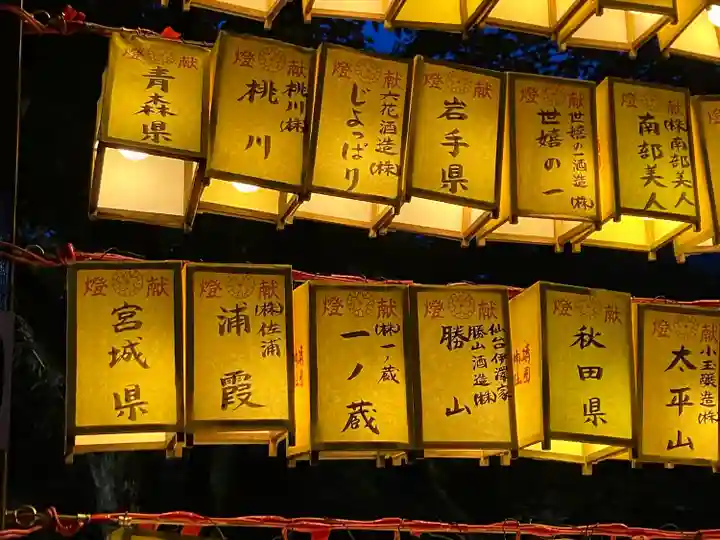 献燈
青森県
献燈
桃川(株)
桃川
献燈
六花酒造(株)
じょっぱり
献燈
岩手県
献燈
世嬉の一酒造(株)
世嬉の一
献燈
(株)南部美人
南部美人
献燈
宮城県
献燈
(株)佐浦
浦霞
献燈
(株)一ノ蔵
一ノ蔵
献燈
仙台伊澤家
勝山酒造(株)
勝山
献燈
秋田県
献燈
小玉醸造(株)
太平山